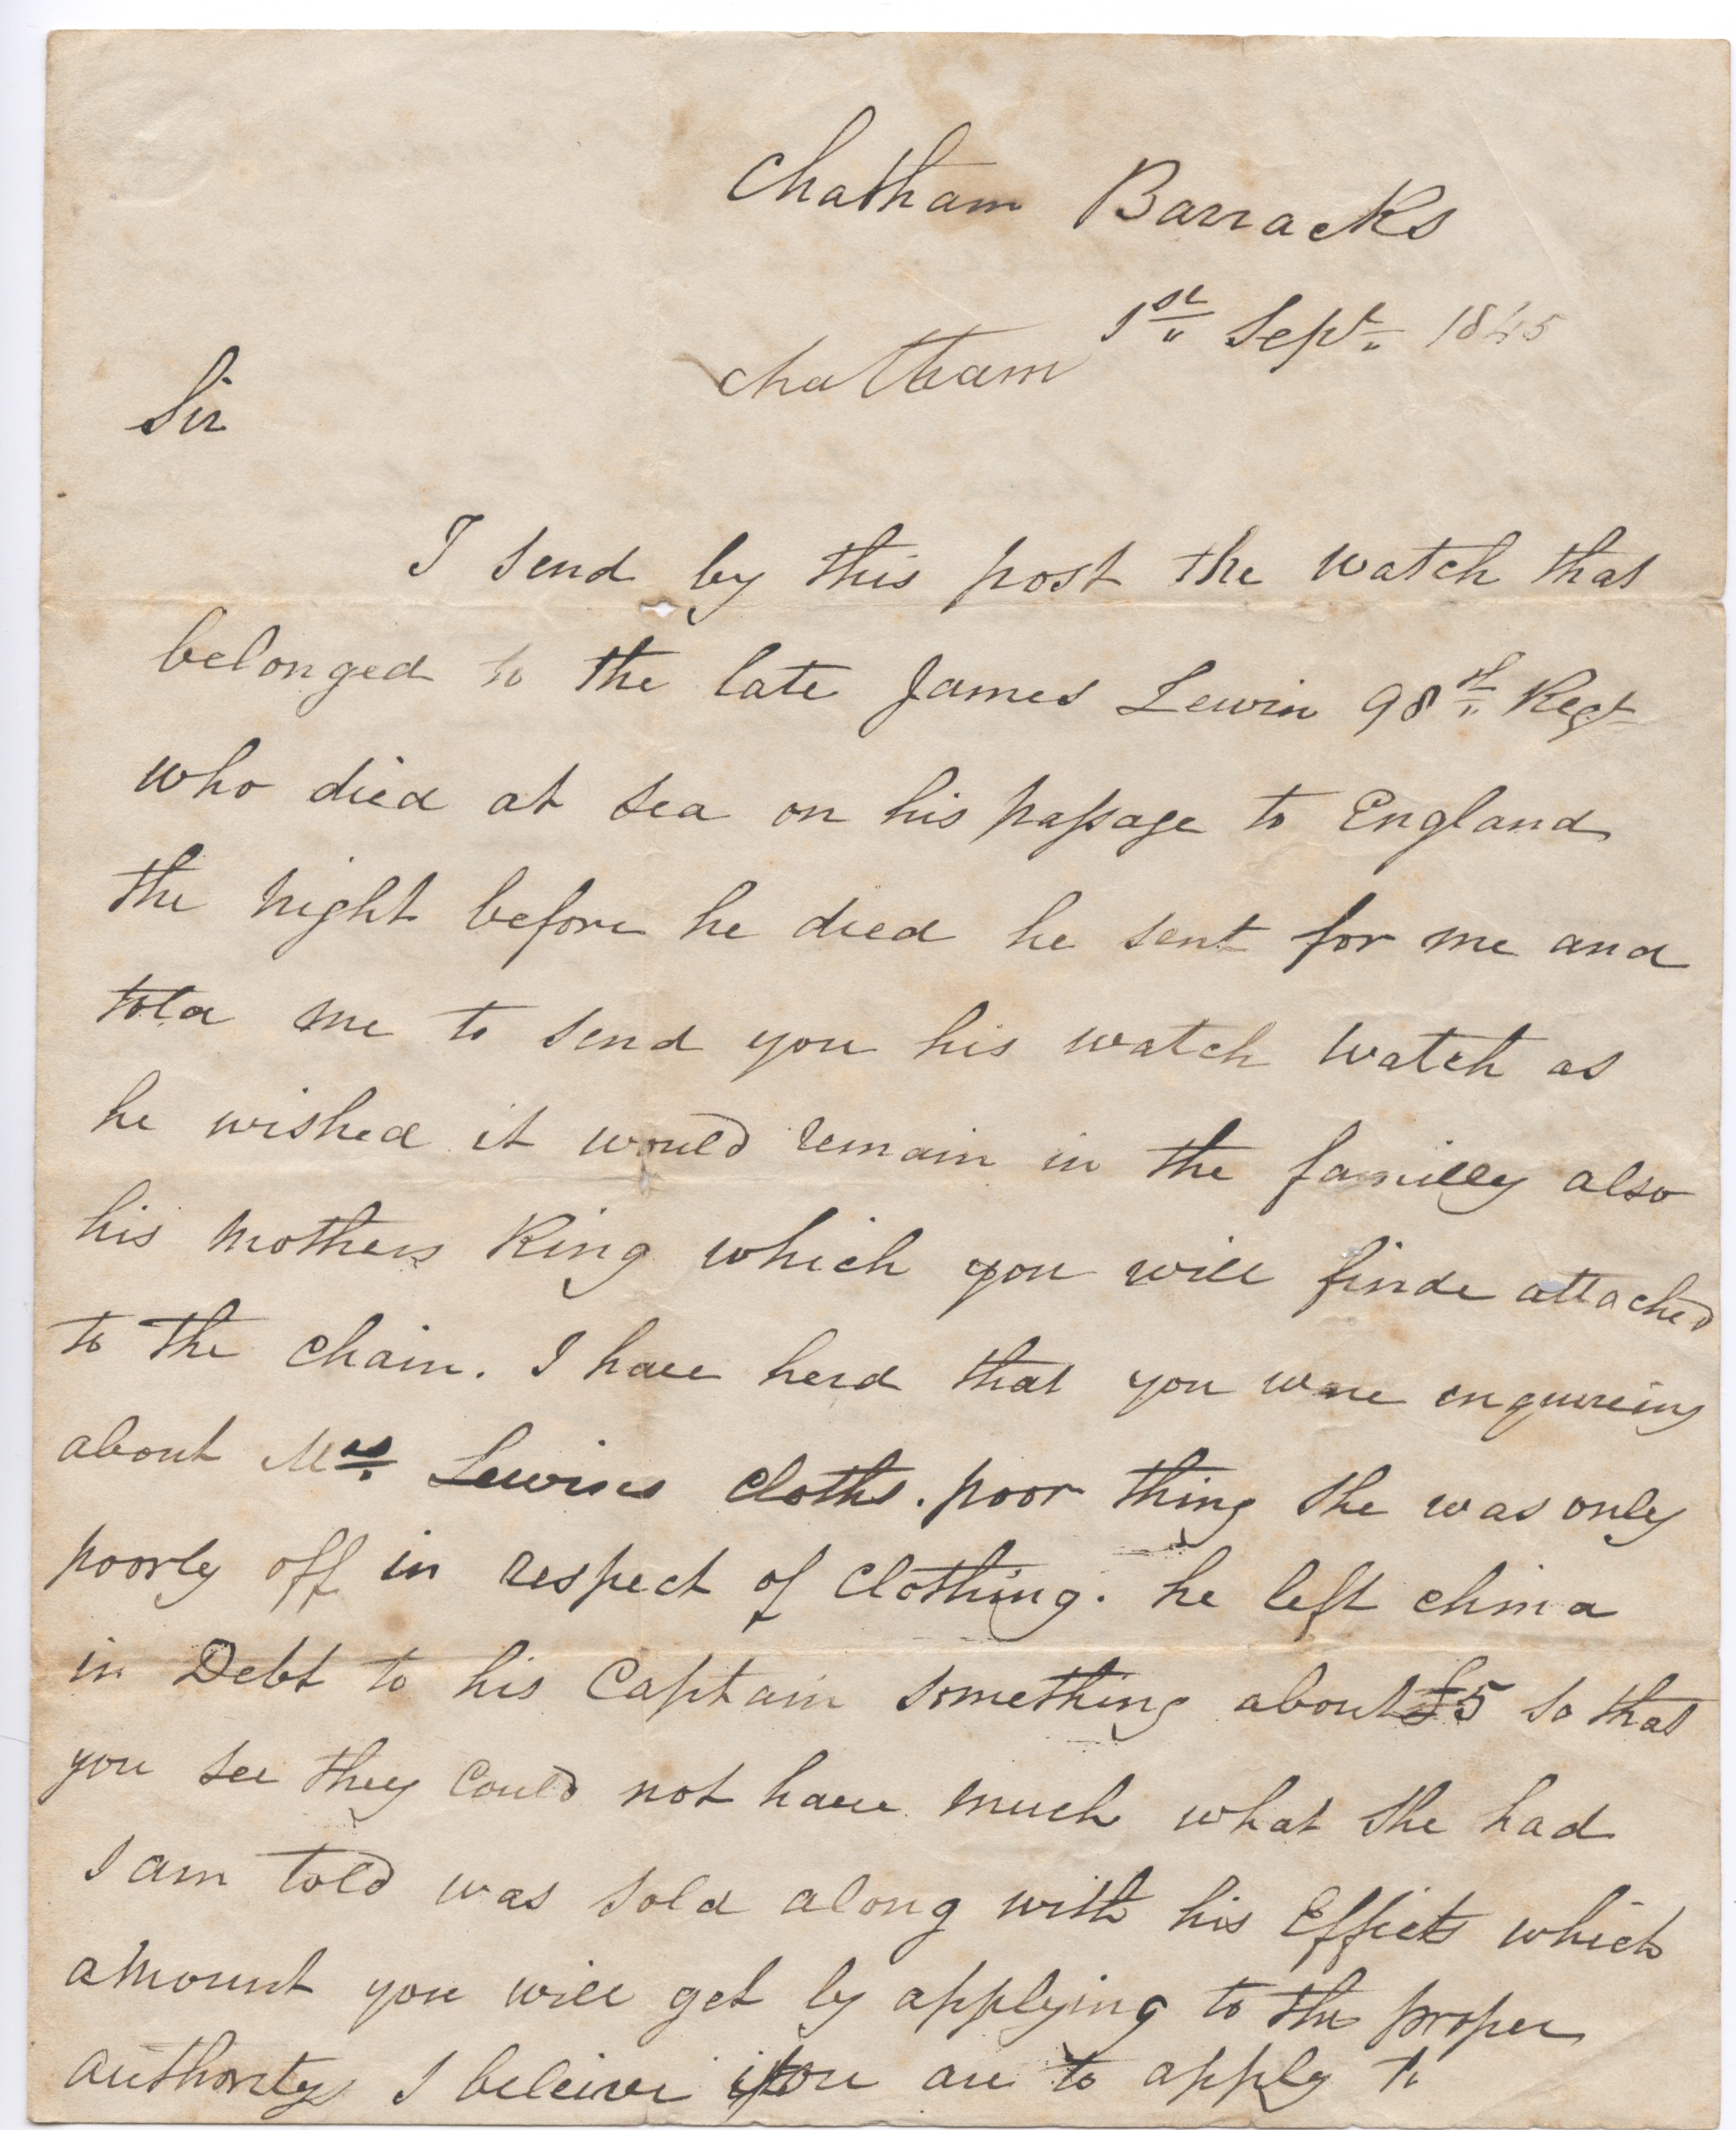 Chatham Barracks
1st Sept. 1845
Chatham
Sir
I send by this post the watch that
belonged to the late James Lewin 98th Regt
who died at sea on his passage to England
the night before he died he sent for me and
told me to send you his watch watch as
he wished it would remain in the familly also
his mothers Ring which you will finde attached
to the chain. I have herd that you were enquireing
about Mrs Lewins cloths. poor thing she was only
poorly off in respect of clothing. he left china
in Debt to his Captain something about £5 so that
you see they could not have much what she had
I am told was sold along with his Effects which
amount you will get by applying to the proper
authority I beleive you are to apply to